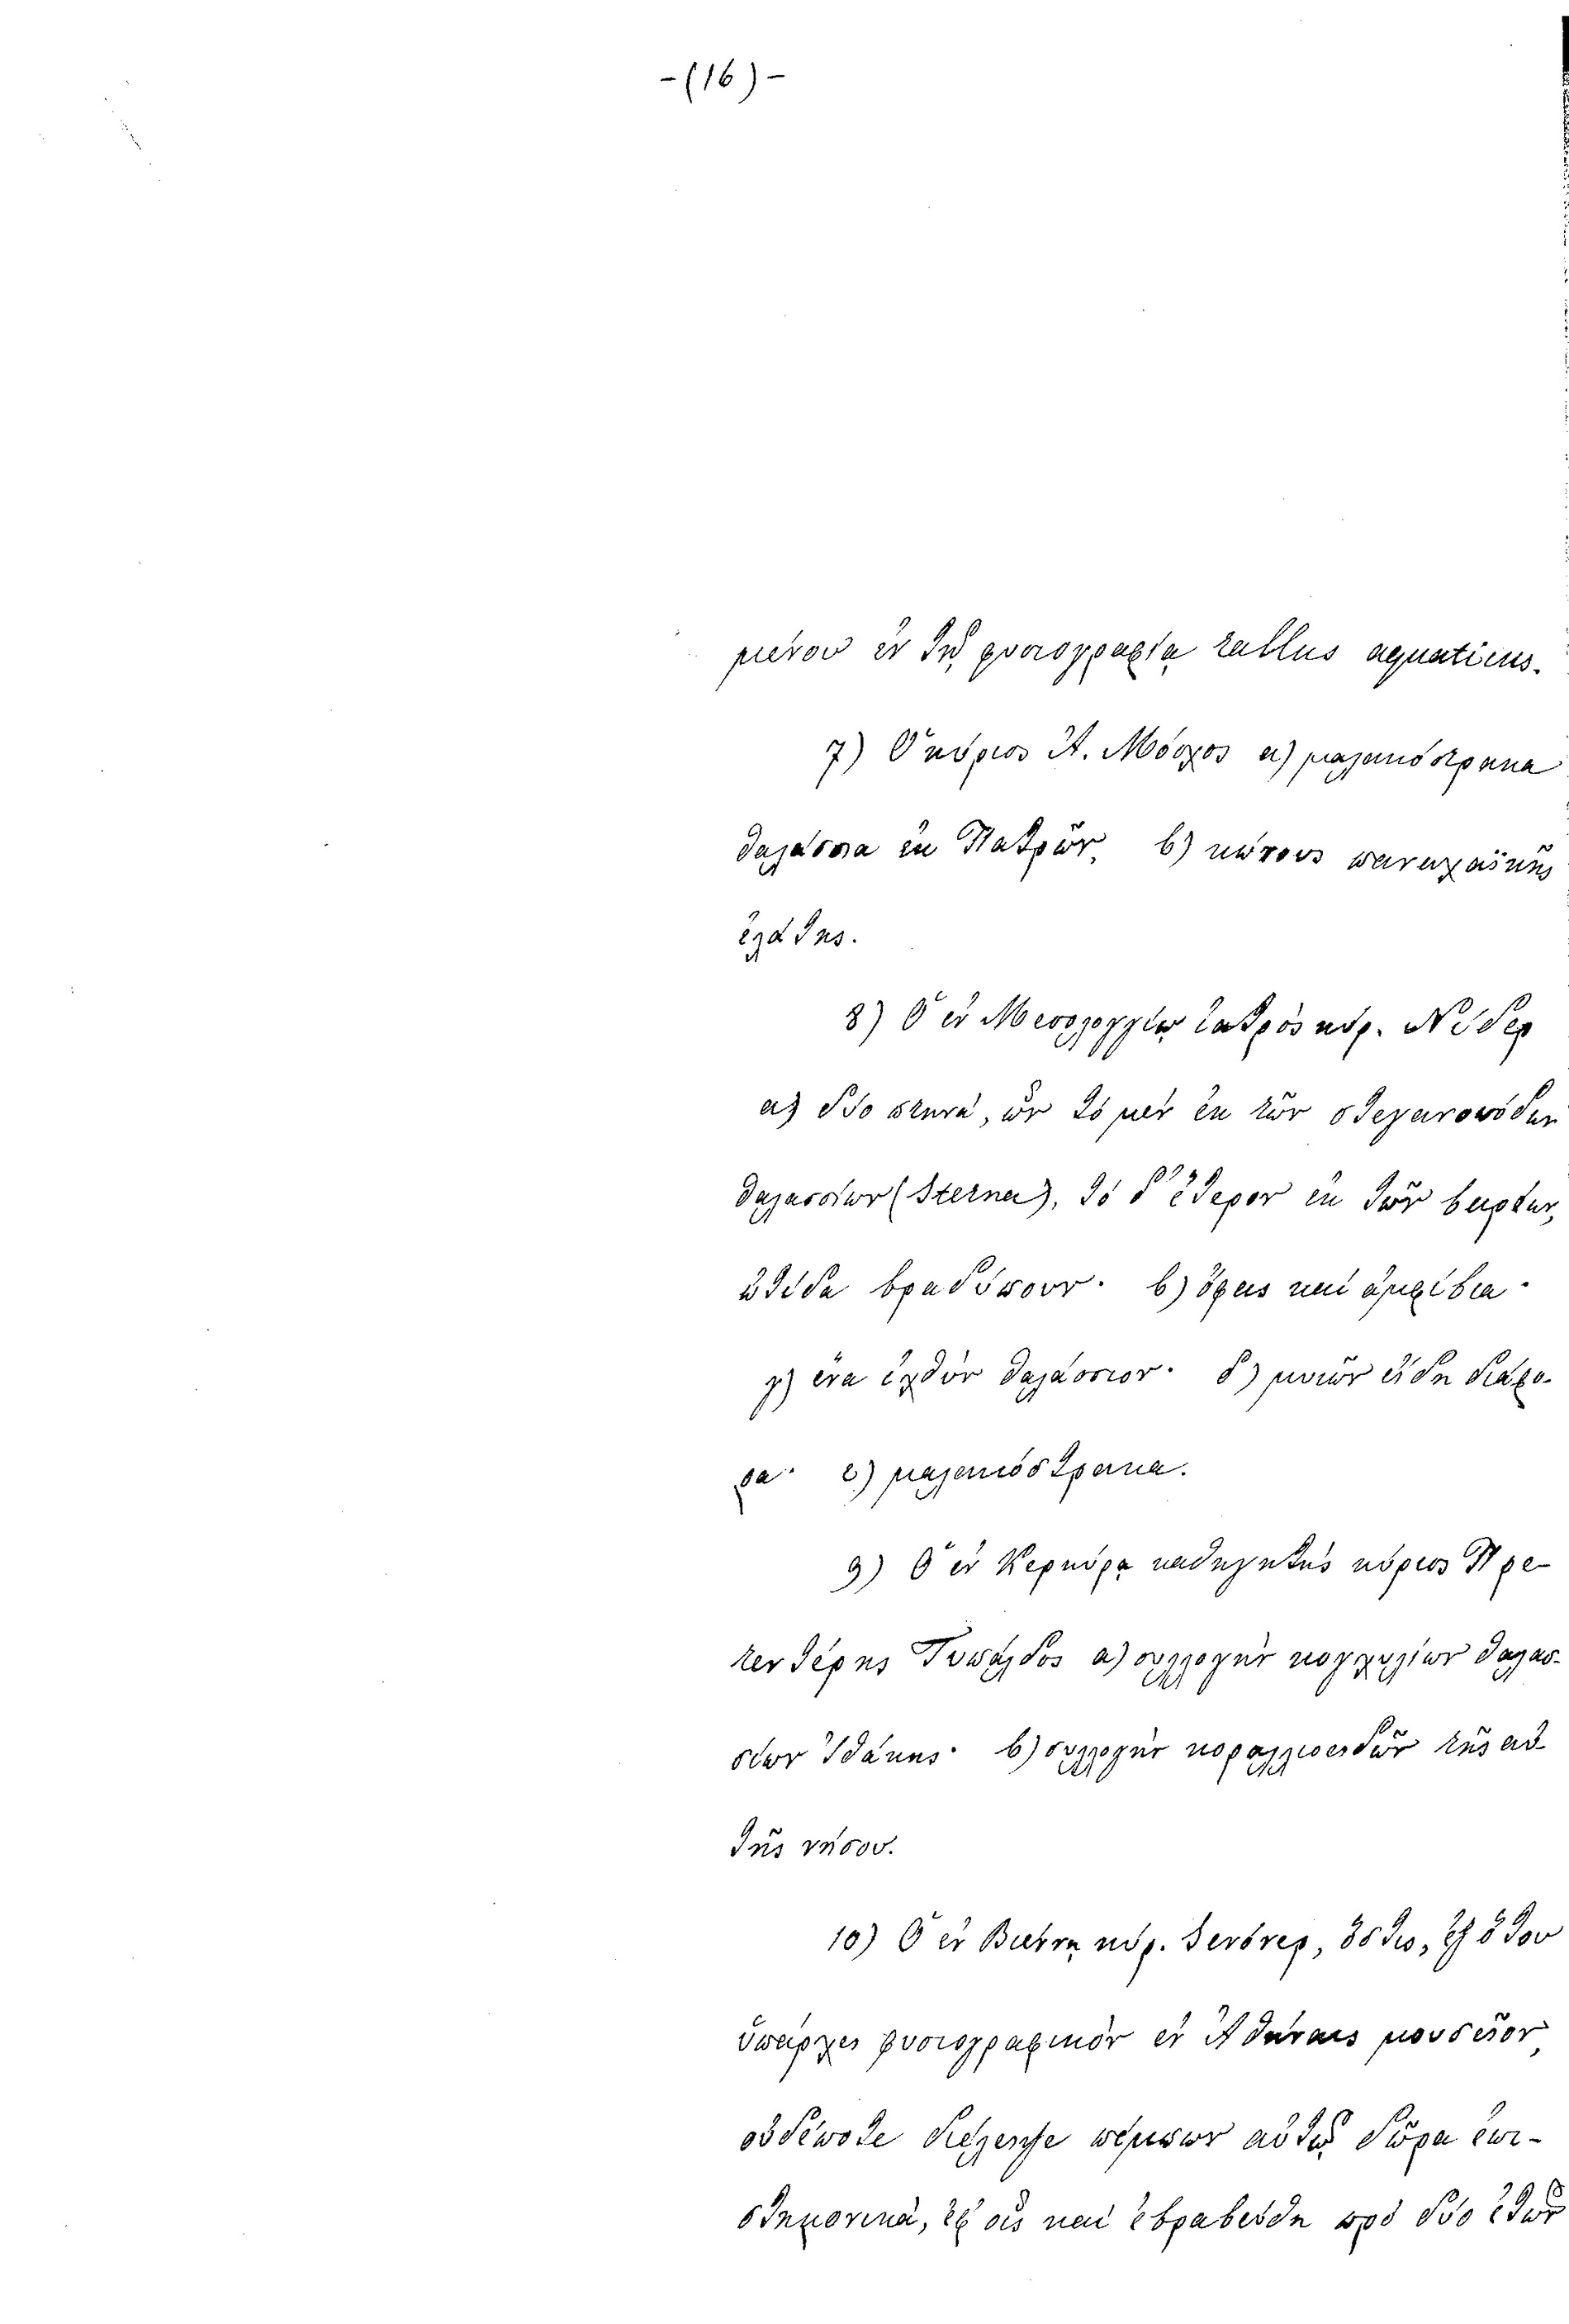 -(16)-
μένου ἐν τῇ φυσιογραφίᾳ rallus aquaticus.
7) Ὁ κύριος Ἀ. Μόσχος α) μαλακόστρακα
θαλάσσια ἐκ Πατρῶν, β) κώνους παναχαϊκῆς
ἐλάτης.
8) Ὁ ἐν Μεσολογγίῳ ἰατρὸς κύρ. Νίδερ
α) δύο πτηνά, ὧν τό μέν ἐκ τῶν στεγανοπόδων
θαλασσίων (Sterna), τό δ' ἕτερον ἐκ τῶν βαρέων,
ὠτίδα βραδύπουν· β) ὄφεις καί ἀμφίβια·
γ) ἕνα ἰχθύν θαλάσσιον· δ) μυιῶν εἴδη διάφο-
ρα· ε) μαλακόστρακα.
9) Ὁ ἐν Κερκύρᾳ καθηγητής κύριος Πρε-
τεντέρης Τυπάλδος α) συλλογὴν κογχυλίων θαλασ-
σίων Ἰθάκης· β) συλλογὴν κοραλλιοειδῶν τῆς αὐ-
τῆς νήσου.
10) Ὁ ἐν Βιέννῃ κύρ. Ζενόνερ, ὅστις, ἐξ ὅτου
ὑπάρχει φυσιογραφικὸν ἐν Ἀθήναις μουσεῖον,
οὐδέποτε διέλειψε πέμπων αὐτῷ δῶρα ἐπι-
στημονικὰ, ἐφ' οἷς καί ἐβραβεύθη πρό δύο ἐτῶν